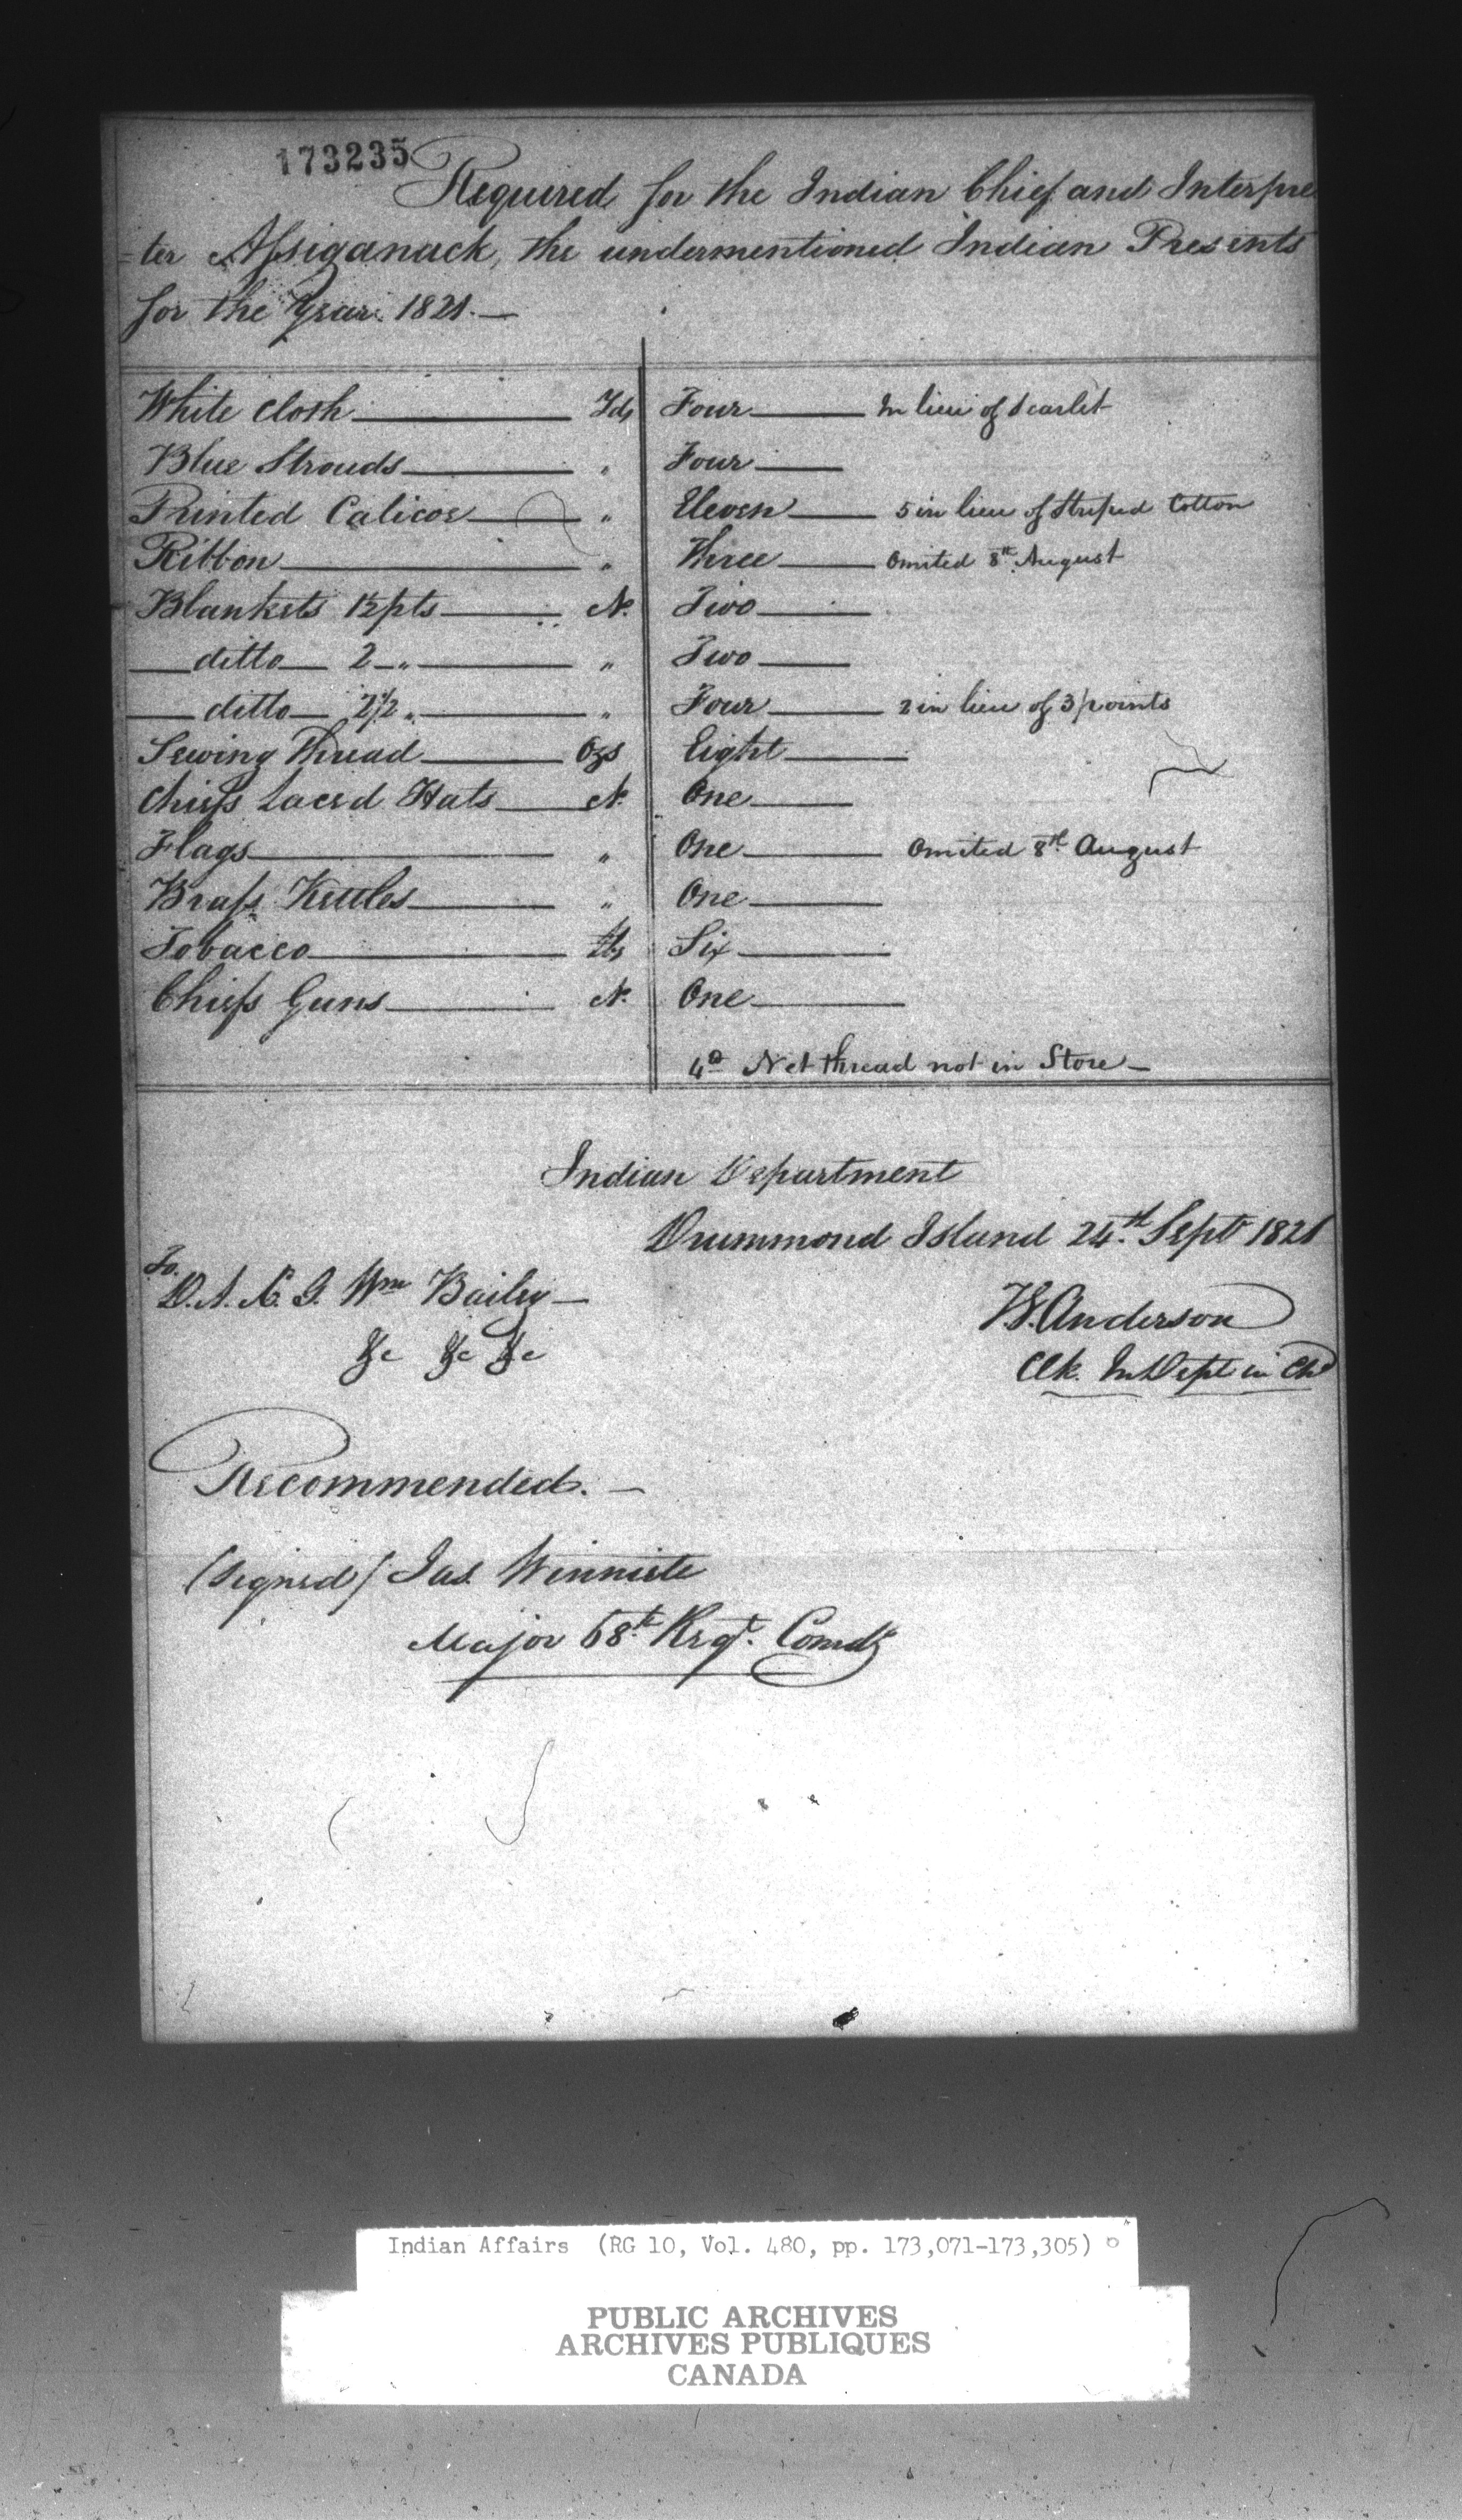 173235
Required for the Indian Chief and Interpre
=ter Assiganack, the undermentioned Indian Presents
for the Year 1821.—
White Cloth — Yds Four — In lieu of Scarlet
Blue Strouds — " Four —
Printed Calicoe — " Eleven — 5 in lieu of Striped Cotton
Ribbon — " Three — Omited 8th August
Blankets 1½ pts — No. Two —
— ditto — 2 — " — " Two —
— ditto — 2½ " — " Four — 2 in lieu of 3 points
Sewing Thread — Ozs Eight —
Chiefs Laced Hats — No. One —
Flags — " One — Omited 8th August
Brass Kettles — " One —
Tobacco — lbs Six —
Chiefs Guns — No. One —
Net thread not in Store —
Indian Department
Drummond Island 24th Sept 1821
To
D.A.C.G. Wm Bailey —
&c &c &c
W. Anderson
Clk. In Dept in Che
Recommended. —
(Signed) Jas. Winniete
Major 68th Regt. Comdg
Indian Affairs (RG 10, Vol. 480, pp. 173,071-173,305)
PUBLIC ARCHIVES
ARCHIVES PUBLIQUES
CANADA